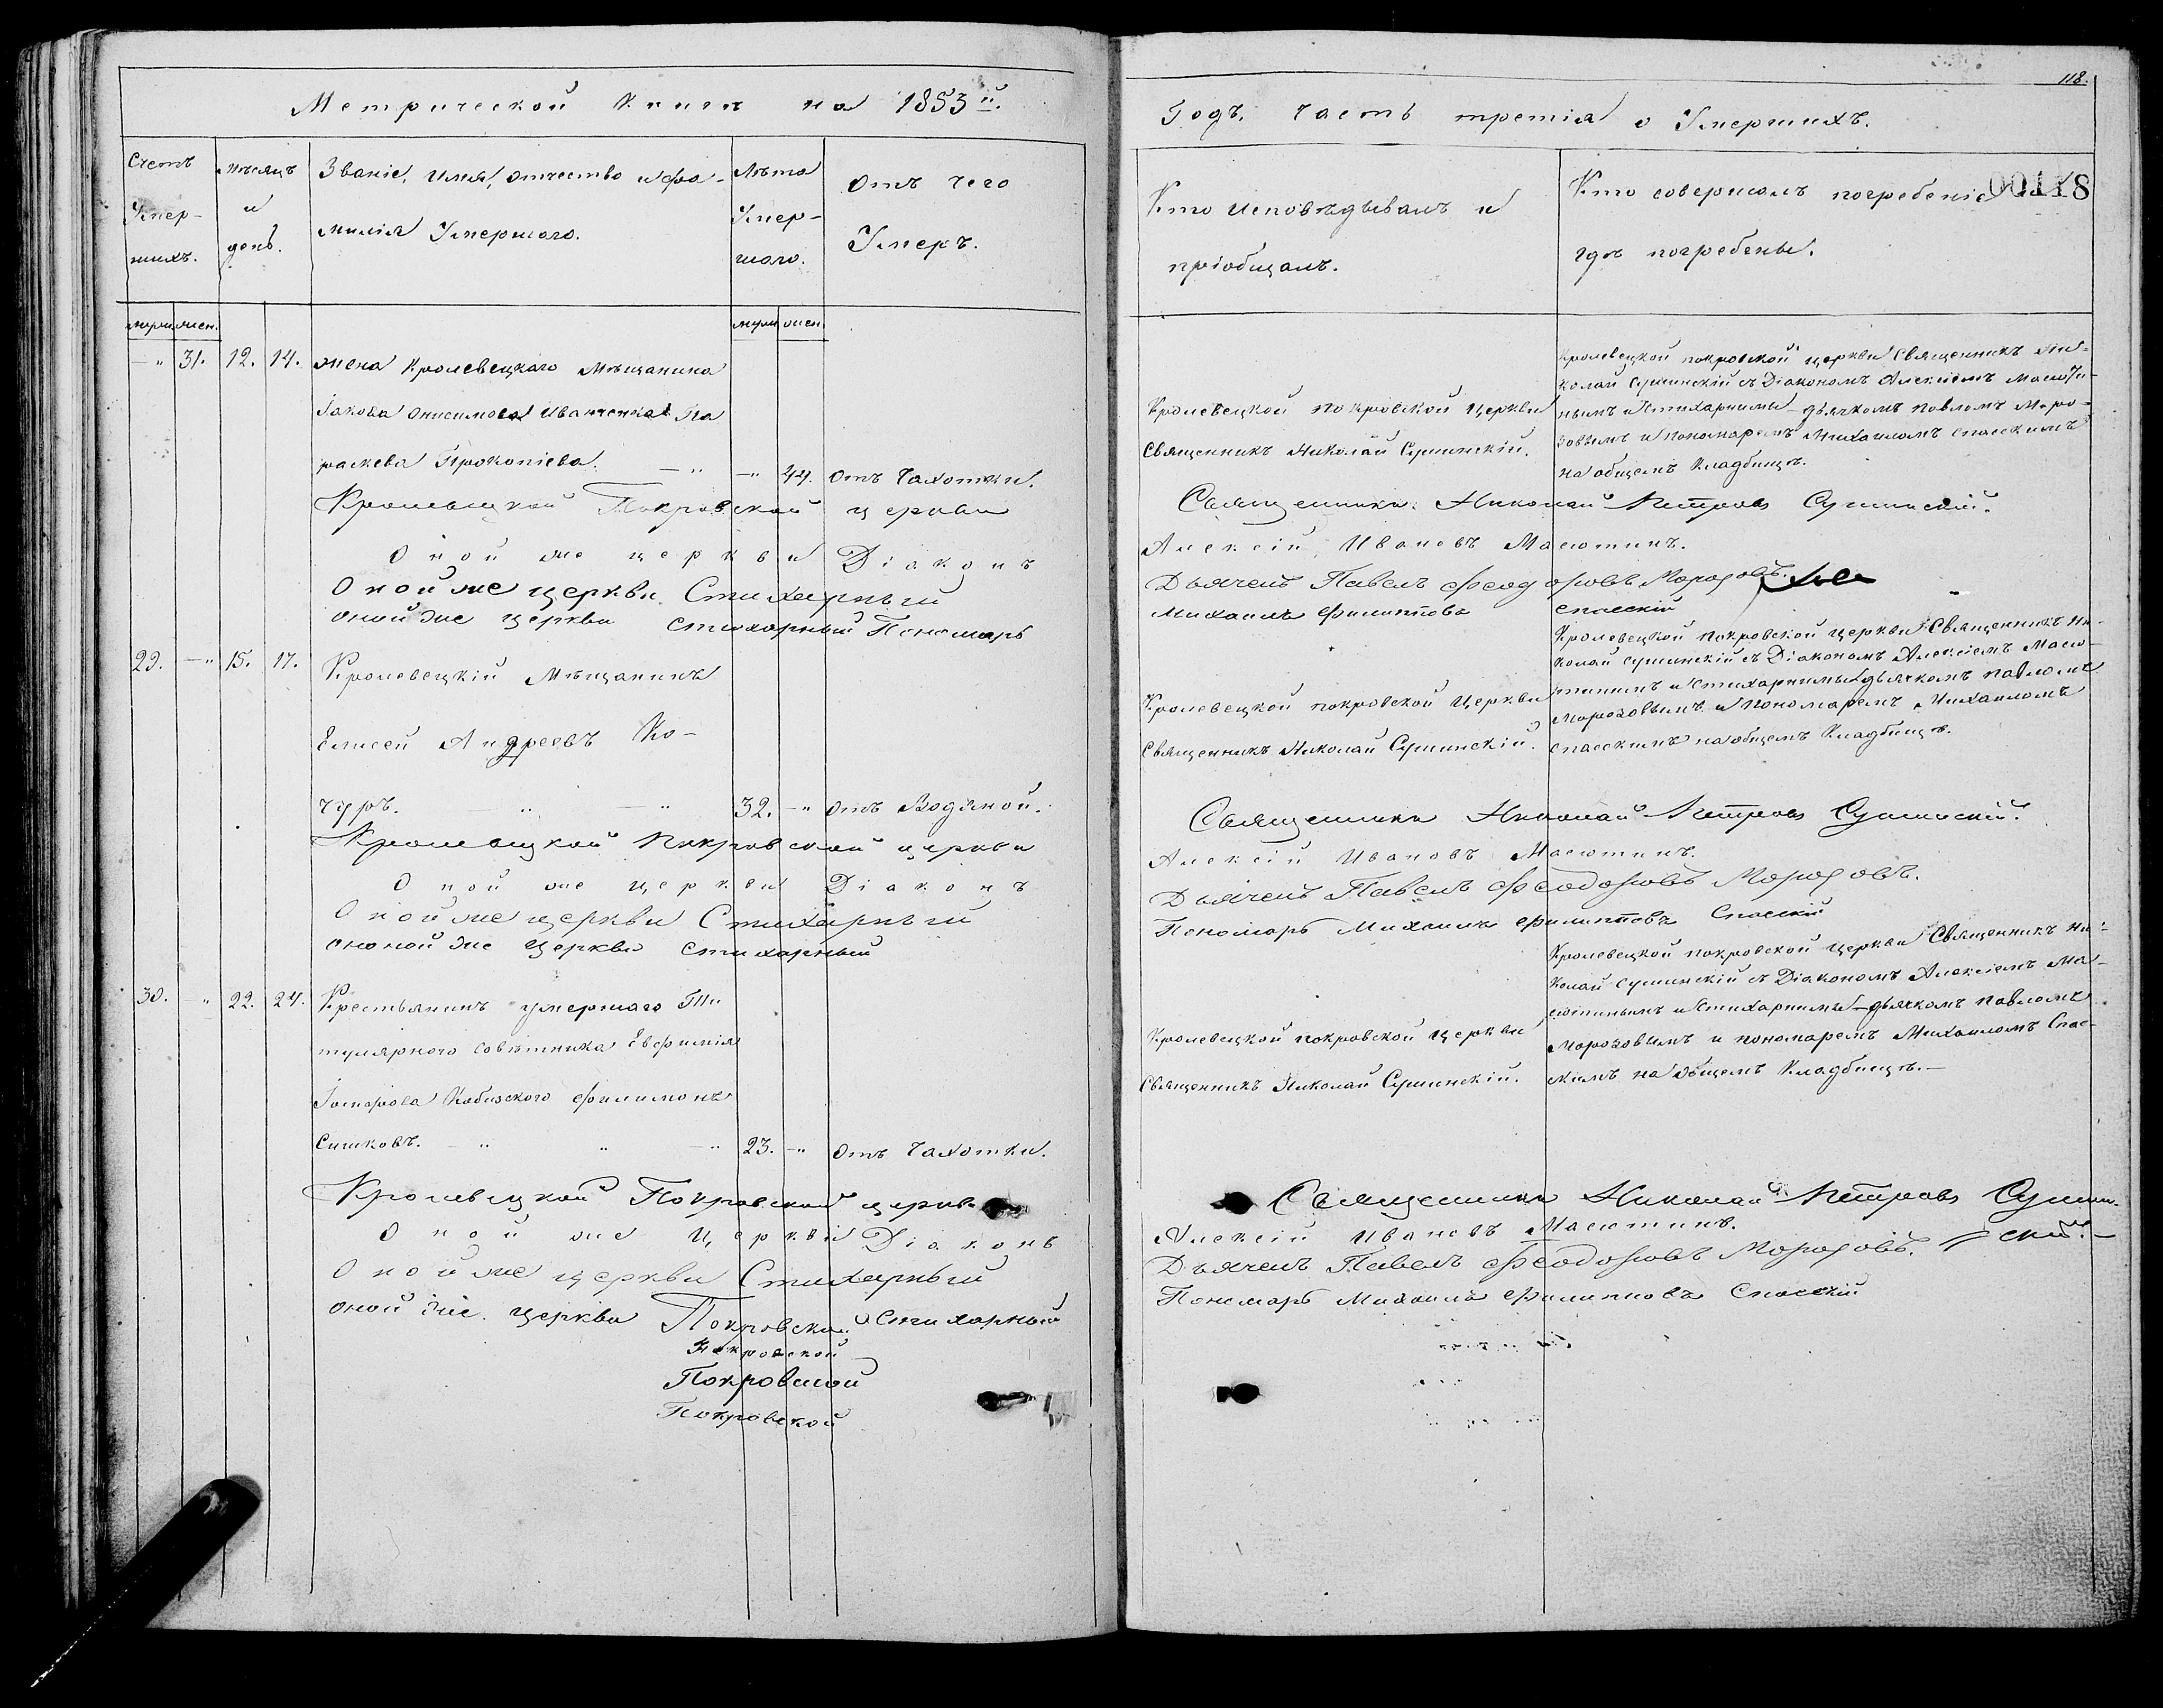 Метрической Книги на 1853й.
Счетъ Умер-шихъ.
мѣсяцъ и день.
Званіе, имя, отчество и фа-
милія Умершаго.
Лѣта Умер-шаго.
Отъ чего
Умеръ.
муж. жен.
муж. жен.
— " 31. 12. 14. жена Кролевецкаго Мѣщанина
Іакова Онисимова Иванченка Па
раскева Прокопіева. — " — " 44. Отъ Чахотки.
Кролевецкой Покровской церкви
Оной же церкви Діаконъ
Оной же церкви Стихарный
оной же церкви стихарный Пономарь
29. — " 15. 17. Кролевецкій Мѣщанинъ
Елисей Андреевъ Ко-
чуръ. — " — " 32. — " Отъ Водяной.
Кролевецкой Покровской церкви
Оной же церкви Діаконъ
Оной же церкви Стихарный
ононой же церкви стихарный
30. " 22. 24. Крестьянинъ умершаго Ти
тулярного совѣтника Евфимія
Кобизского Филимонъ
Сишковъ. — " " — " 23. — " Отъ Чахотки.
Кролевецкой Покровской церкви
Оной же Церкви Діаконъ
Оной же церкви Стихарный
оной же церкви Покровской Стихарный
Покровской
Покровской
Покровской
118.
Годъ. Часть третія о Умершихъ.
00118
Кто исповѣдывалъ и
пріобщалъ.
Кто совершалъ погребеніе и
гдѣ погребены.
Кролевецкой покровской Церкви
Священникъ Николай Сушинскій.
Кролевецкой покровской церкви Священникъ Ни-
колай Сушинскій съ Діакономъ Алексіемъ Масюти-
нымъ и Стихарными дьячкомъ Павломъ Моро-
зовымъ и пономаремъ Михаиломъ Спасскимъ
на общемъ Кладбищѣ.
Священникъ Николай Петровъ Сушинскій.
Алексій Ивановъ Масютинъ.
Дьячекъ Павелъ Феодоровъ Морозовъ.
Михаилъ Филипповъ Спасскій
Кролевецкой покровской Церкви
Священникъ Николай Сушинскій.
Кролевецкой покровской церкви Священникъ Ни-
колай Сушинскій съ Діакономъ Алексіемъ Масю-
тинимъ и Стихарними дьячкомъ Павломъ
Морозовымъ и Пономаремъ Михаиломъ
Спасскимъ на общемъ Кладбищѣ.
Священникъ Николай Петровъ Сушинскій.
Алексій Ивановъ Масютинъ.
Дьячекъ Павелъ Феодоровъ Морозовъ.
Пономарь Михаилъ Филипповъ Спасскій
Кролевецкой покровской Церкви
Священникъ Николай Сушинскій.
Кролевецкой покровской церкви Священникъ Ни-
колай Сушинскій съ Діакономъ Алексіемъ Ма-
сютинымъ и Стихарними дьячкомъ Павломъ
Морозовымъ и пономаремъ Михаиломъ Спас-
скимъ на общемъ Кладбищѣ. —
Священникъ Николай Петровъ Сушин-
скій. —
Алексій Ивановъ Масютинъ.
Дьячекъ Павелъ Феодоровъ Морозовъ.
Пономарь Михаилъ Филипповъ Спасскій